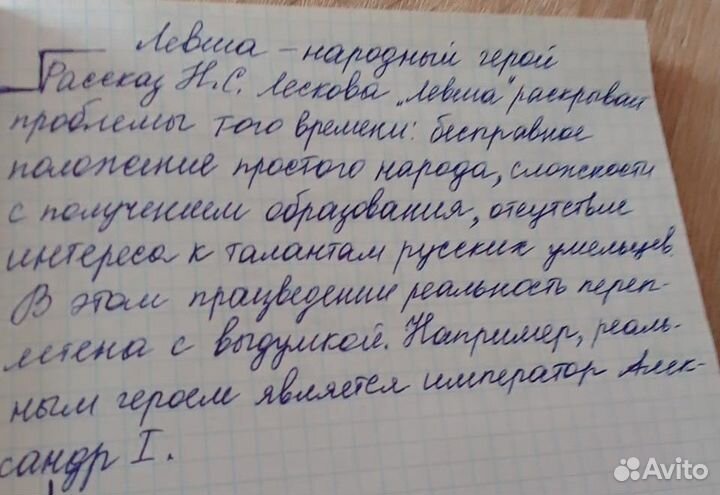 Левша – народный герой
Рассказ Н.С. Лескова „Левша" раскрывает
проблемы того времени: бесправное
положение простого народа, сложности
с получением образования, отсутствие
интереса к талантам русских умельцев.
В этом працведении реальность переп-
летена с выдумкой. Например, реаль-
ным героем является император Алек-
сандр I.
Avito